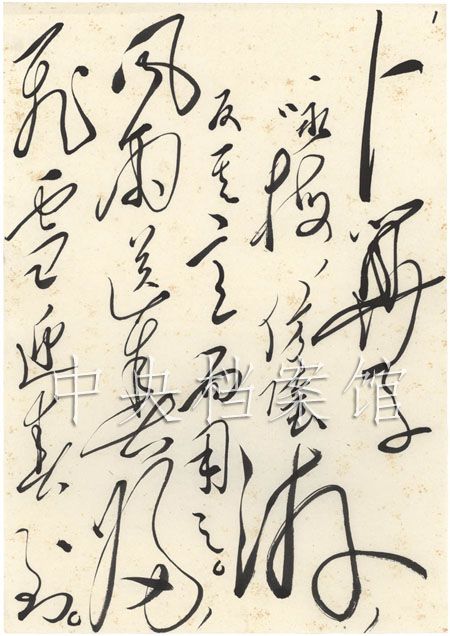 1
卜算子
咏梅、仿陆游、
反其意而用之。
风雨送春归，
飞雪迎春到。
中央档案馆